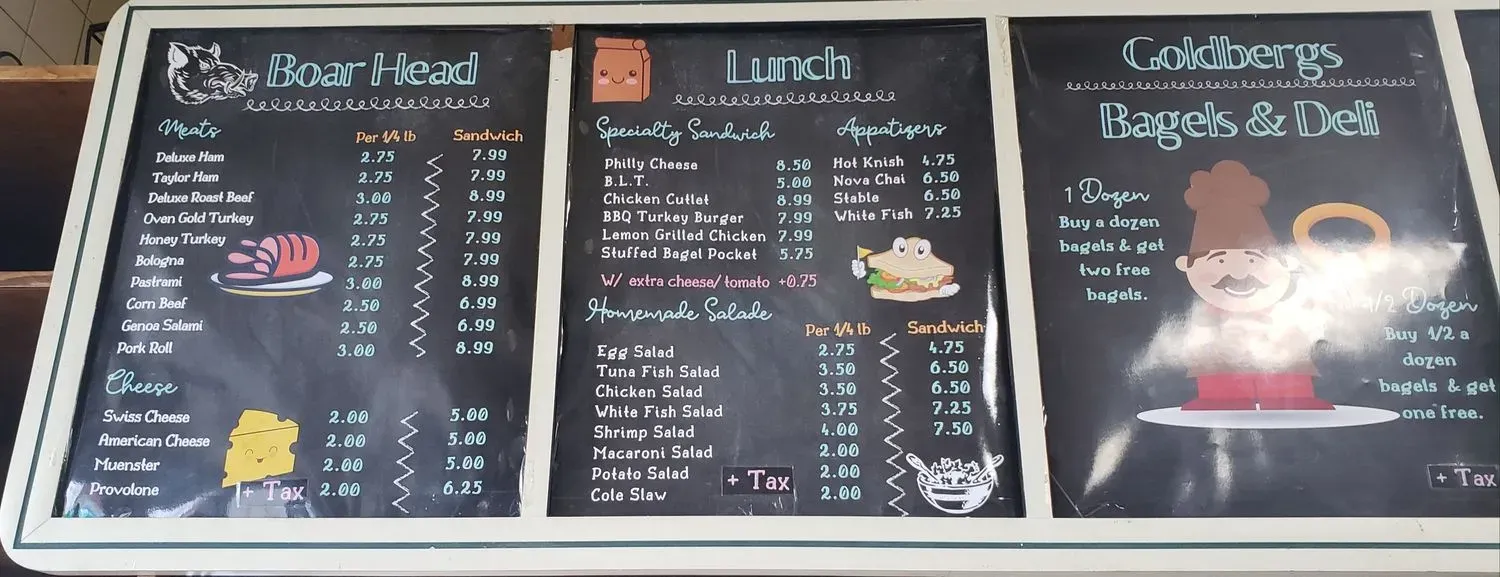 Boar Head
Meats Per 1/4 lb Sandwich
Deluxe Ham 2.75 7.99
Taylor Ham 2.75 7.99
Deluxe Roast Beef 3.00 8.99
Oven Gold Turkey 2.75 7.99
Honey Turkey 2.75 7.99
Bologna 2.75 7.99
Pastrami 3.00 8.99
Corn Beef 2.50 6.99
Genoa Salami 2.50 6.99
Pork Roll 3.00 8.99
Cheese
Swiss Cheese 2.00 5.00
American Cheese 2.00 5.00
Muenster 2.00 5.00
Provolone 2.00 6.25
+ Tax
Lunch
Specialty Sandwich
Philly Cheese 8.50
B.L.T. 5.00
Chicken Cutlet 8.99
BBQ Turkey Burger 7.99
Lemon Grilled Chicken 7.99
Stuffed Bagel Pocket 5.75
W/ extra cheese/ tomato +0.75
Appatizers
Hot Knish 4.75
Nova Chai 6.50
Stable 6.50
White Fish 7.25
Homemade Salade
Per 1/4 lb Sandwich
Egg Salad 2.75 4.75
Tuna Fish Salad 3.50 6.50
Chicken Salad 3.50 6.50
White Fish Salad 3.75 7.25
Shrimp Salad 4.00 7.50
Macaroni Salad 2.00
Potato Salad 2.00
Cole Slaw 2.00
+ Tax
Goldbergs
Bagels & Deli
1 Dozen
Buy a dozen
bagels & get
two free
bagels.
1/2 Dozen
Buy 1/2 a
dozen
bagels & get
one free.
+ Tax